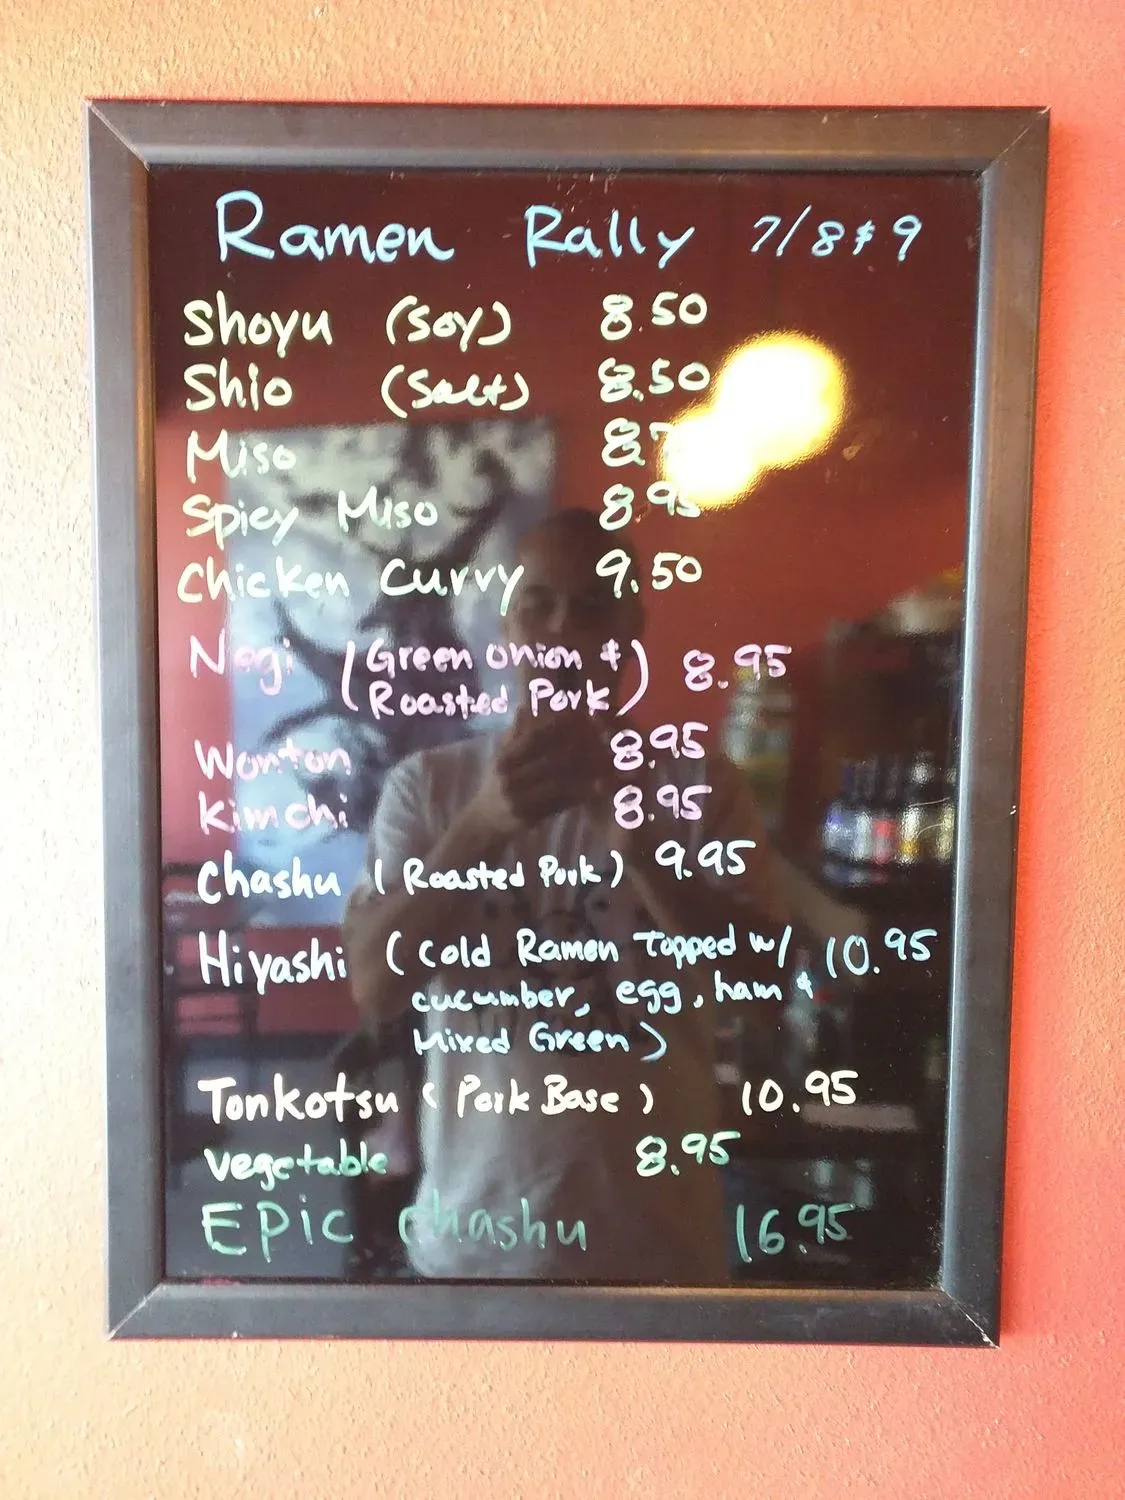 Ramen Rally 7/8 & 9
Shoyu (Soy) 8.50
Shio (Salt) 8.50
Miso
Spicy Miso 8.95
Chicken Curry 9.50
Negi (Green Onion & 8.95
Roasted Pork)
Wonton 8.95
Kimchi 8.95
Chashu (Roasted Pork) 9.95
Hiyashi (Cold Ramen Topped w/ 10.95
cucumber, egg, ham &
Mixed Green)
Tonkotsu (Pork Base) 10.95
Vegetable 8.95
EPic Chashu 16.95